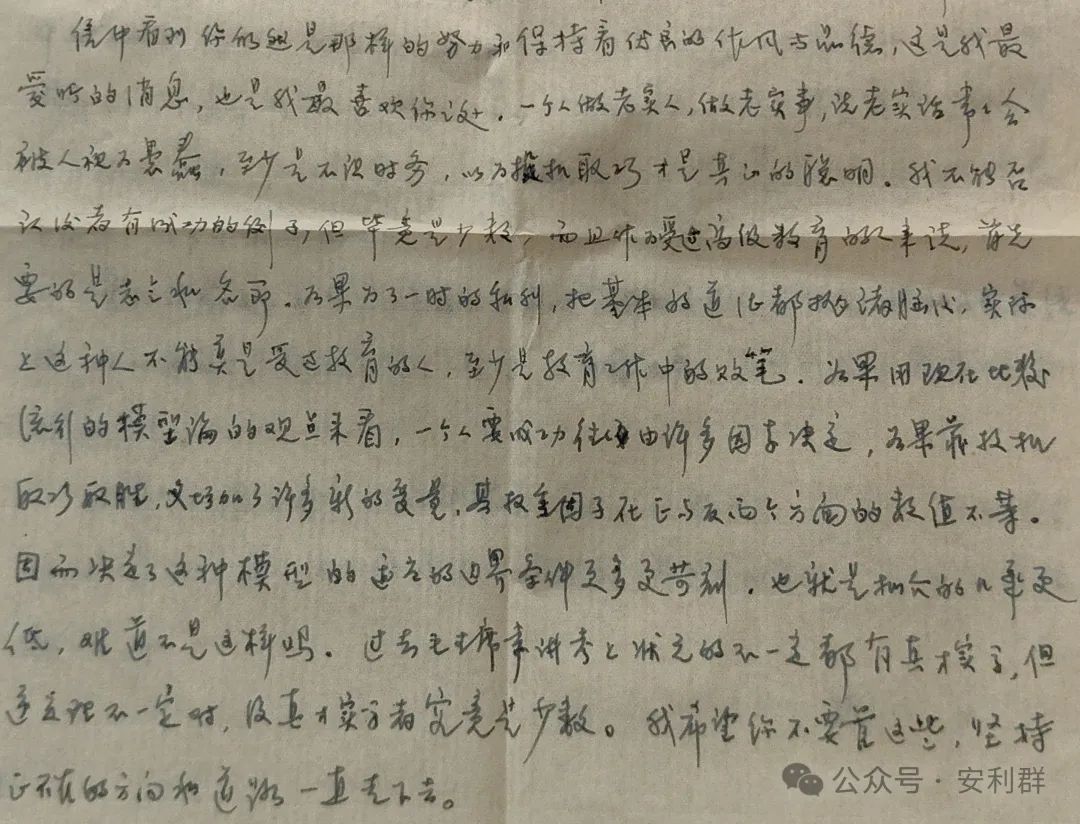 信中看到你仍然是那样的努力和保持着优良的作风与品德，这是我最
爱听的消息，也是我最喜欢你这些．一个人做老实人，做老实事，说老实话常常会
被人视为愚蠢，至少是不识时务，以为投机取巧才是真正的聪明。我不能否
认后者有成功的例子，但毕竟是少数，而且作为受过高级教育的人来说，首先
要的是志气和名节．如果为了一时的私利，把基本的道德都抛诸脑后，实际
上这种人不能算是受过教育的人，至少是教育工作中的败笔．如果用现在比较
流行的模型论的观点来看，一个人要成功往往由许多因素决定，如果靠投机
取巧取胜，又增加了许多新的变量，其权重因子在正与反两个方面的数值不等。
因而决定了这种模型的适应的边界条件更多更苛刻．也就是机会的几率更
低，难道不是这样吗．过去毛主席常讲考上状元的不一定都有真才实学，但
逆定理不一定对，没真才实学者究竟是少数。我希望你不要管这些，坚持
正确的方向和道路一直走下去。
公众号·安利群